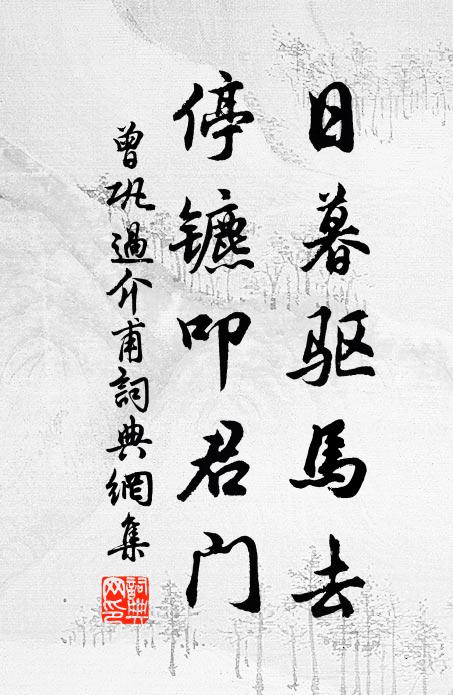 日暮驱馬去
停镳叩君门
曾巩過介甫詞典網集
詞典网印